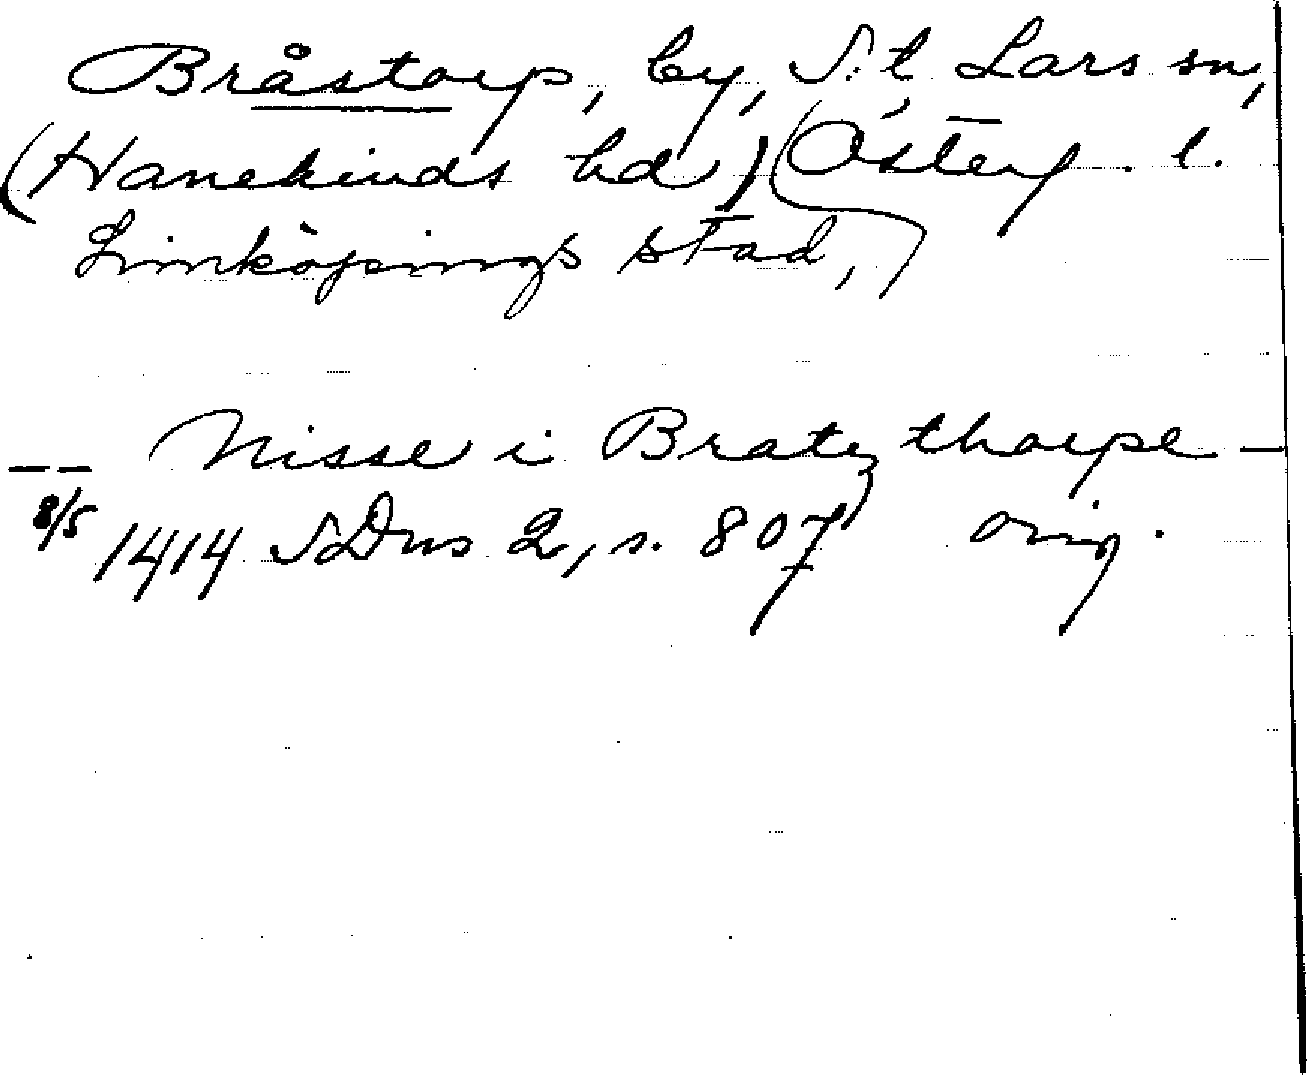 Bråstorp, by, S:t Lars sn,
(Hanekinds hd) Österg. l.
Linköpings stad,
-- Nisse i Bratz thorpe -
8/5 1414 SDns 2, s. 807 orig.